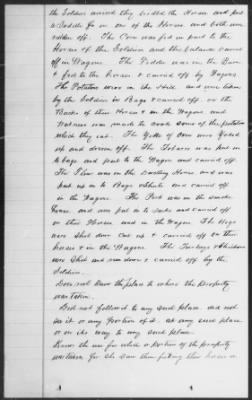 the Soldiers arrived they bridled the Horses and put
a Saddle on one of the Horses and both were
ridden off. The Corn was fed in part to the
Horses of the Soldiers and the balance carried
off in Wagons. The Fodder was in the Barn
& fed to the horses & carried off by Wagons
The Potatoes were in the Hill and were taken
by the Soldiers in Bags & carried off on the
Backs of their Horses & in the Wagons and
Witness was made to cook some of the potatoes
which they eat. The Yoke of Oxen were Yoked
up and driven off. The Tobacco was put in
to bags and put to the Wagon and carried off.
The Flour was in the Dwelling House and was
put up in to Bags & Sacks and carried off
in the Wagons. The Pork was in the smoke
house, and was put in Sacks and carried off
on their Horses and in the Wagon. The Hogs
were shot down cut up & carried off on their
horses & in the Wagons. The Turkeys & Chickens
were shot and run down & carried off by the
Soldiers.
Does not know the place to where the property
was taken.
Did not follow it to any such place and not
see it or any portion of it at any such place
or on its way to any such place.
Knew the use for which a portion of the property
was taken for she saw them feeding their horses on